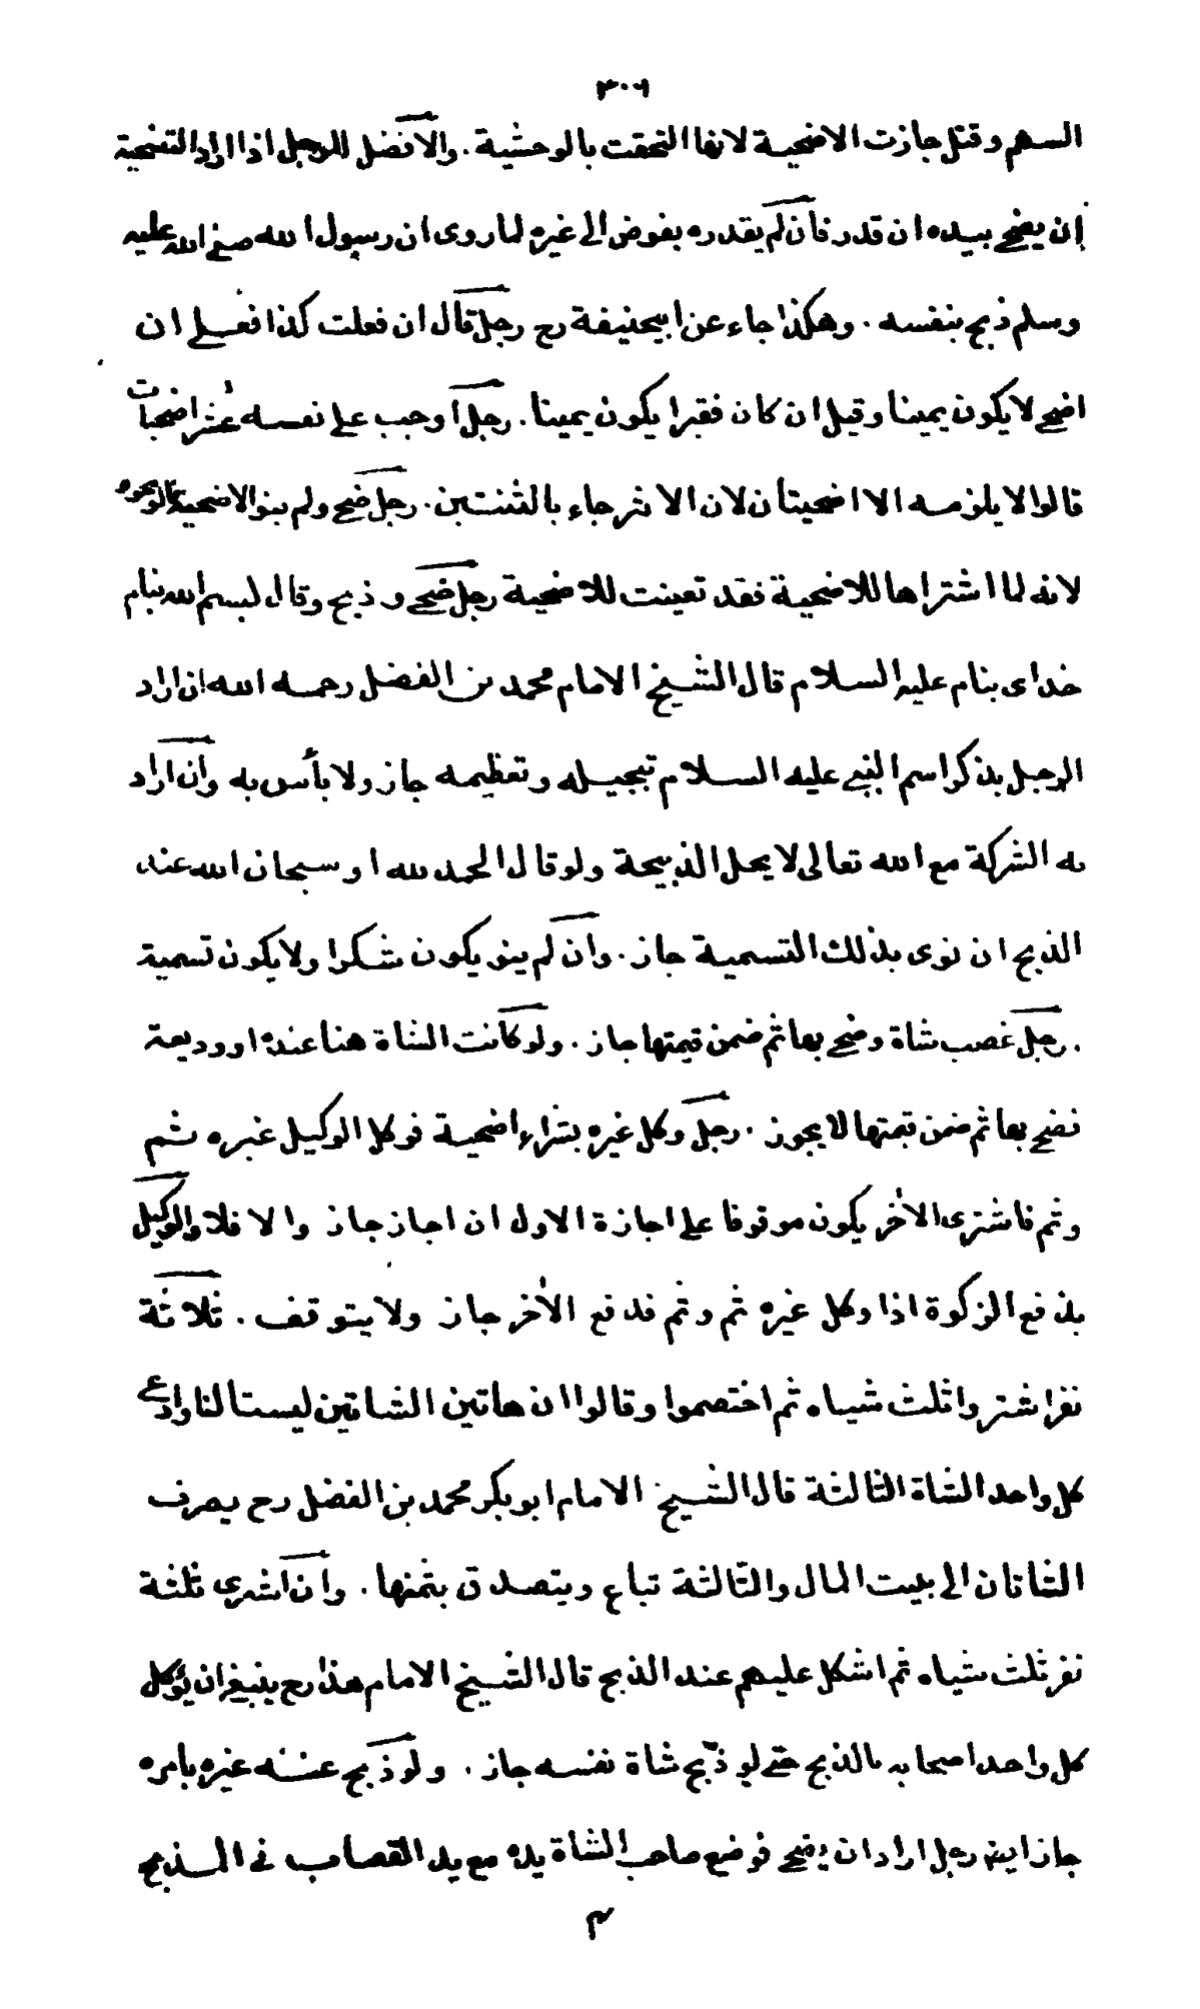 ٣٠٦
السهم وقتل جازت الاضحية لانها التحقت بالوحشية. والافضل للرجل اذا اراد التضحية
ان يضحى بيده ان قدر فان لم يقدر يفوض الى غيره لما روى ان رسول الله صلى الله عليه
وسلم ذبح بنفسه. وهكذا جاء عن ابيحنيفة رح رجل قال ان فعلت كذا فعلى ان
اضحى لا يكون يمينا وقيل ان كان فقيرا يكون يمينا. رجل اوجب على نفسه عشر اضحيات
قالوا لا يلزمه الا اضحيتان لان الاثر جاء بالثنتين. رجل ضحى ولم ينو الاضحية
لانه لما اشتراها للاضحية فقد تعينت للاضحية رجل ضحى وذبح وقال بسم الله بنام
خداى بنام عليه السلام قال الشيخ الامام محمد بن الفضل رحمه الله ان اراد
الرجل بذكر اسم النبى عليه السلام تبجيله وتعظيمه جاز ولا بأس به وان اراد
به الشركة مع الله تعالى لا يحل الذبيحة ولو قال الحمد لله او سبحان الله عند
الذبح ان نوى بذلك التسمية جاز. وان لم ينو يكون شكرا ولا يكون تسمية
. رجل غصب شاة وضحى بها ثم ضمن قيمتها جاز. ولو كانت الشاة هنا عنده او وديعة
فضحى بها ثم ضمن قيمتها لا يجوز. رجل وكل غيره بشراء اضحية فوكل الوكيل غيره ثم
وثم فاشترى الاٰخر يكون موقوفا على اجازة الاول ان اجاز جاز والا فلا والوكيل
بدفع الزكوة اذا وكل غيره ثم وثم فدفع الاٰخر جاز ولا يتوقف. ثلاثة
نفر اشتروا ثلث شياه ثم اختصموا وقالوا ان هاتين الشاتين ليستا لنا وادعى
كل واحد الشاة الثالثة قال الشيخ الامام ابو بكر محمد بن الفضل رح يصرف
الشاتان الى بيت المال والثالثة تباع ويتصدق بثمنها. وان اشترى ثلثة
نفر ثلث شياه ثم اشكل عليهم عند الذبح قال الشيخ الامام هذا رح ينبغى ان يؤكل
كل واحد اصحابه بالذبح حتى لو ذبح شاة نفسه جاز. ولو ذبح عنه غيره بامره
جاز ايضا رجل اراد ان يضحى فوضع صاحب الشاة يده مع يد القصاب فى المذبح
م